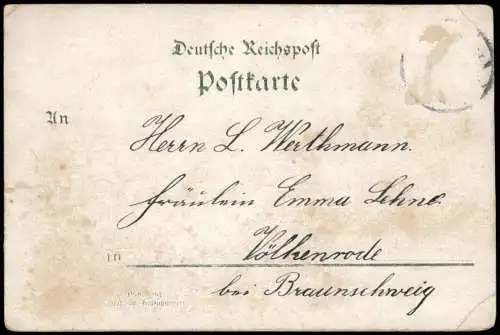 Deutsche Reichspost
Postkarte
An
Herrn L. Werthmann.
Fräulein Emma Lehne.
in
Völkenrode
bei Braunschweig